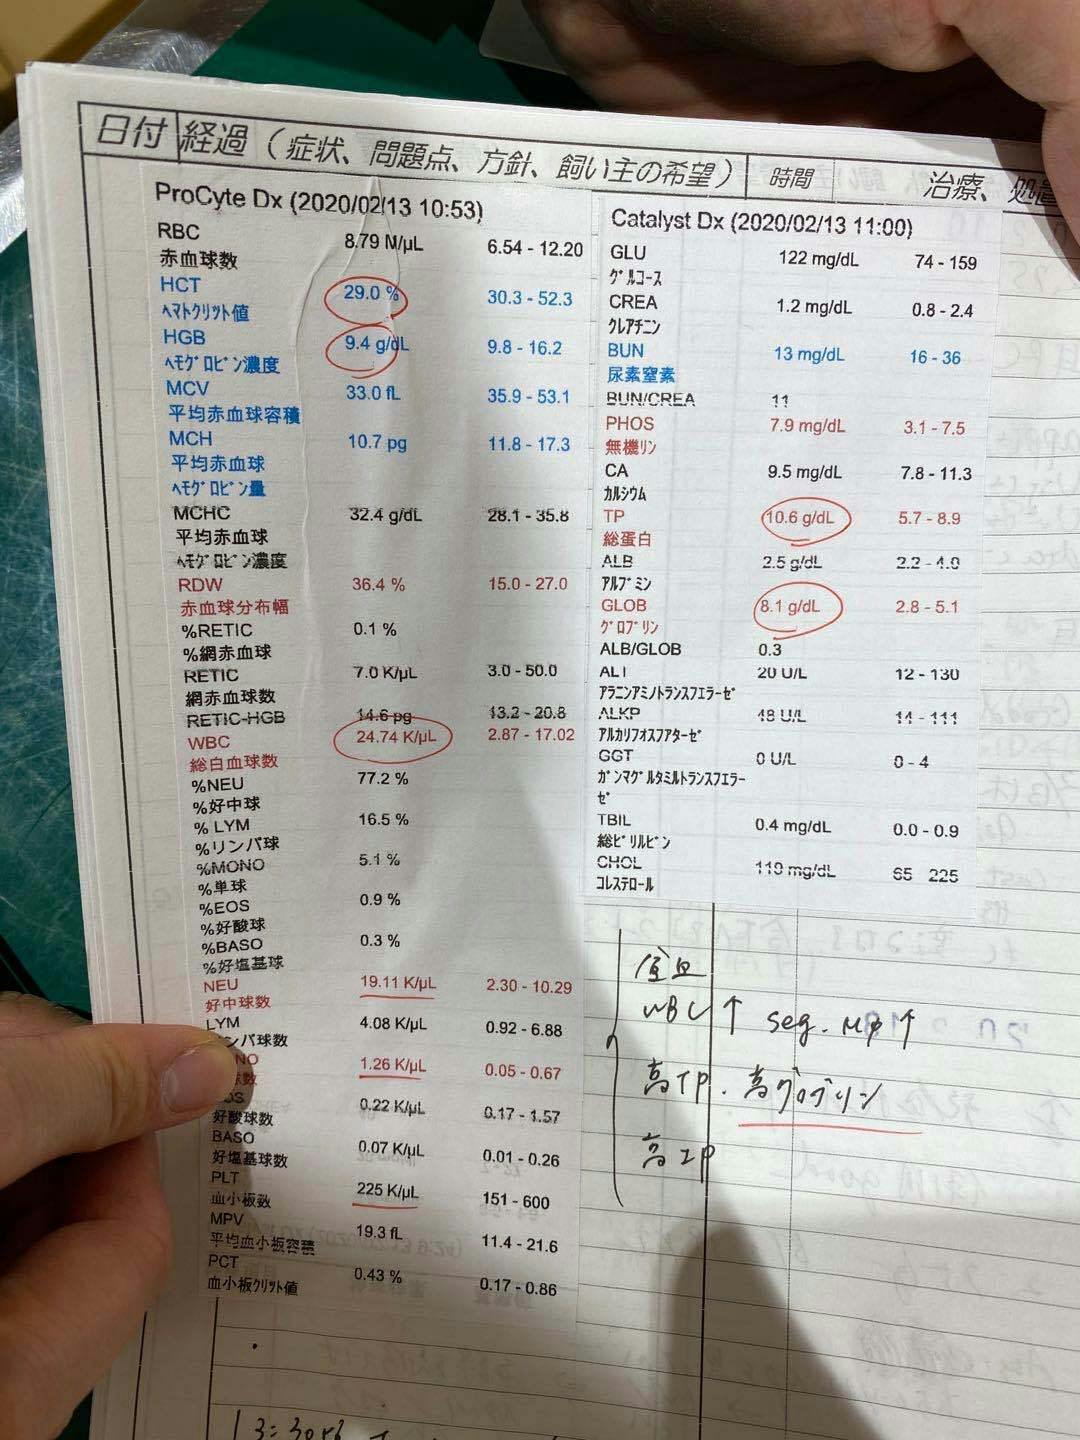 日付 経過（症状、問題点、方針、飼い主の希望） 時間 治療、処置
ProCyte Dx (2020/02/13 10:53)
RBC 8.79 M/µL 6.54 - 12.20
赤血球数
HCT 29.0 % 30.3 - 52.3
ﾍﾏﾄｸﾘｯﾄ値
HGB 9.4 g/dL 9.8 - 16.2
ﾍﾓｸﾞﾛﾋﾞﾝ濃度
MCV 33.0 fL 35.9 - 53.1
平均赤血球容積
MCH 10.7 pg 11.8 - 17.3
平均赤血球
ﾍﾓｸﾞﾛﾋﾞﾝ量
MCHC 32.4 g/dL 28.1 - 35.8
平均赤血球
ﾍﾓｸﾞﾛﾋﾞﾝ濃度
RDW 36.4 % 15.0 - 27.0
赤血球分布幅
%RETIC 0.1 %
%網赤血球
RETIC 7.0 K/µL 3.0 - 50.0
網赤血球数
RETIC-HGB 14.6 pg 13.2 - 20.8
WBC 24.74 K/µL 2.87 - 17.02
総白血球数
%NEU 77.2 %
%好中球
% LYM 16.5 %
%リンパ球
%MONO 5.1 %
%単球
%EOS 0.9 %
%好酸球
%BASO 0.3 %
%好塩基球
NEU 19.11 K/µL 2.30 - 10.29
好中球数
LYM 4.08 K/µL 0.92 - 6.88
ンパ球数
NO 1.26 K/µL 0.05 - 0.67
球数
OS 0.22 K/µL 0.17 - 1.57
好酸球数
BASO 0.07 K/µL 0.01 - 0.26
好塩基球数
PLT 225 K/µL 151 - 600
血小板数
MPV 19.3 fL 11.4 - 21.6
平均血小板容積
PCT 0.43 % 0.17 - 0.86
血小板ｸﾘｯﾄ値
Catalyst Dx (2020/02/13 11:00)
GLU 122 mg/dL 74 - 159
ｸﾞﾙｺｰｽ
CREA 1.2 mg/dL 0.8 - 2.4
ｸﾚｱﾁﾆﾝ
BUN 13 mg/dL 16 - 36
尿素窒素
BUN/CREA 11
PHOS 7.9 mg/dL 3.1 - 7.5
無機ﾘﾝ
CA 9.5 mg/dL 7.8 - 11.3
ｶﾙｼｳﾑ
TP 10.6 g/dL 5.7 - 8.9
総蛋白
ALB 2.5 g/dL 2.2 - 4.0
ｱﾙﾌﾞﾐﾝ
GLOB 8.1 g/dL 2.8 - 5.1
ｸﾞﾛﾌﾞﾘﾝ
ALB/GLOB 0.3
ALT 20 U/L 12 - 130
ｱﾗﾆﾝｱﾐﾉﾄﾗﾝｽﾌｪﾗｰｾﾞ
ALKP 48 U/L 14 - 111
ｱﾙｶﾘﾌｫｽﾌｧﾀｰｾﾞ
GGT 0 U/L 0 - 4
ｶﾞﾝﾏｸﾞﾙﾀﾐﾙﾄﾗﾝｽﾌｪﾗｰ
ｾﾞ
TBIL 0.4 mg/dL 0.0 - 0.9
総ﾋﾞﾘﾙﾋﾞﾝ
CHOL 119 mg/dL 65 225
ｺﾚｽﾃﾛｰﾙ
貧血
WBC ↑ seg. Mφ ↑
高TP. 高グロブリン
高IP